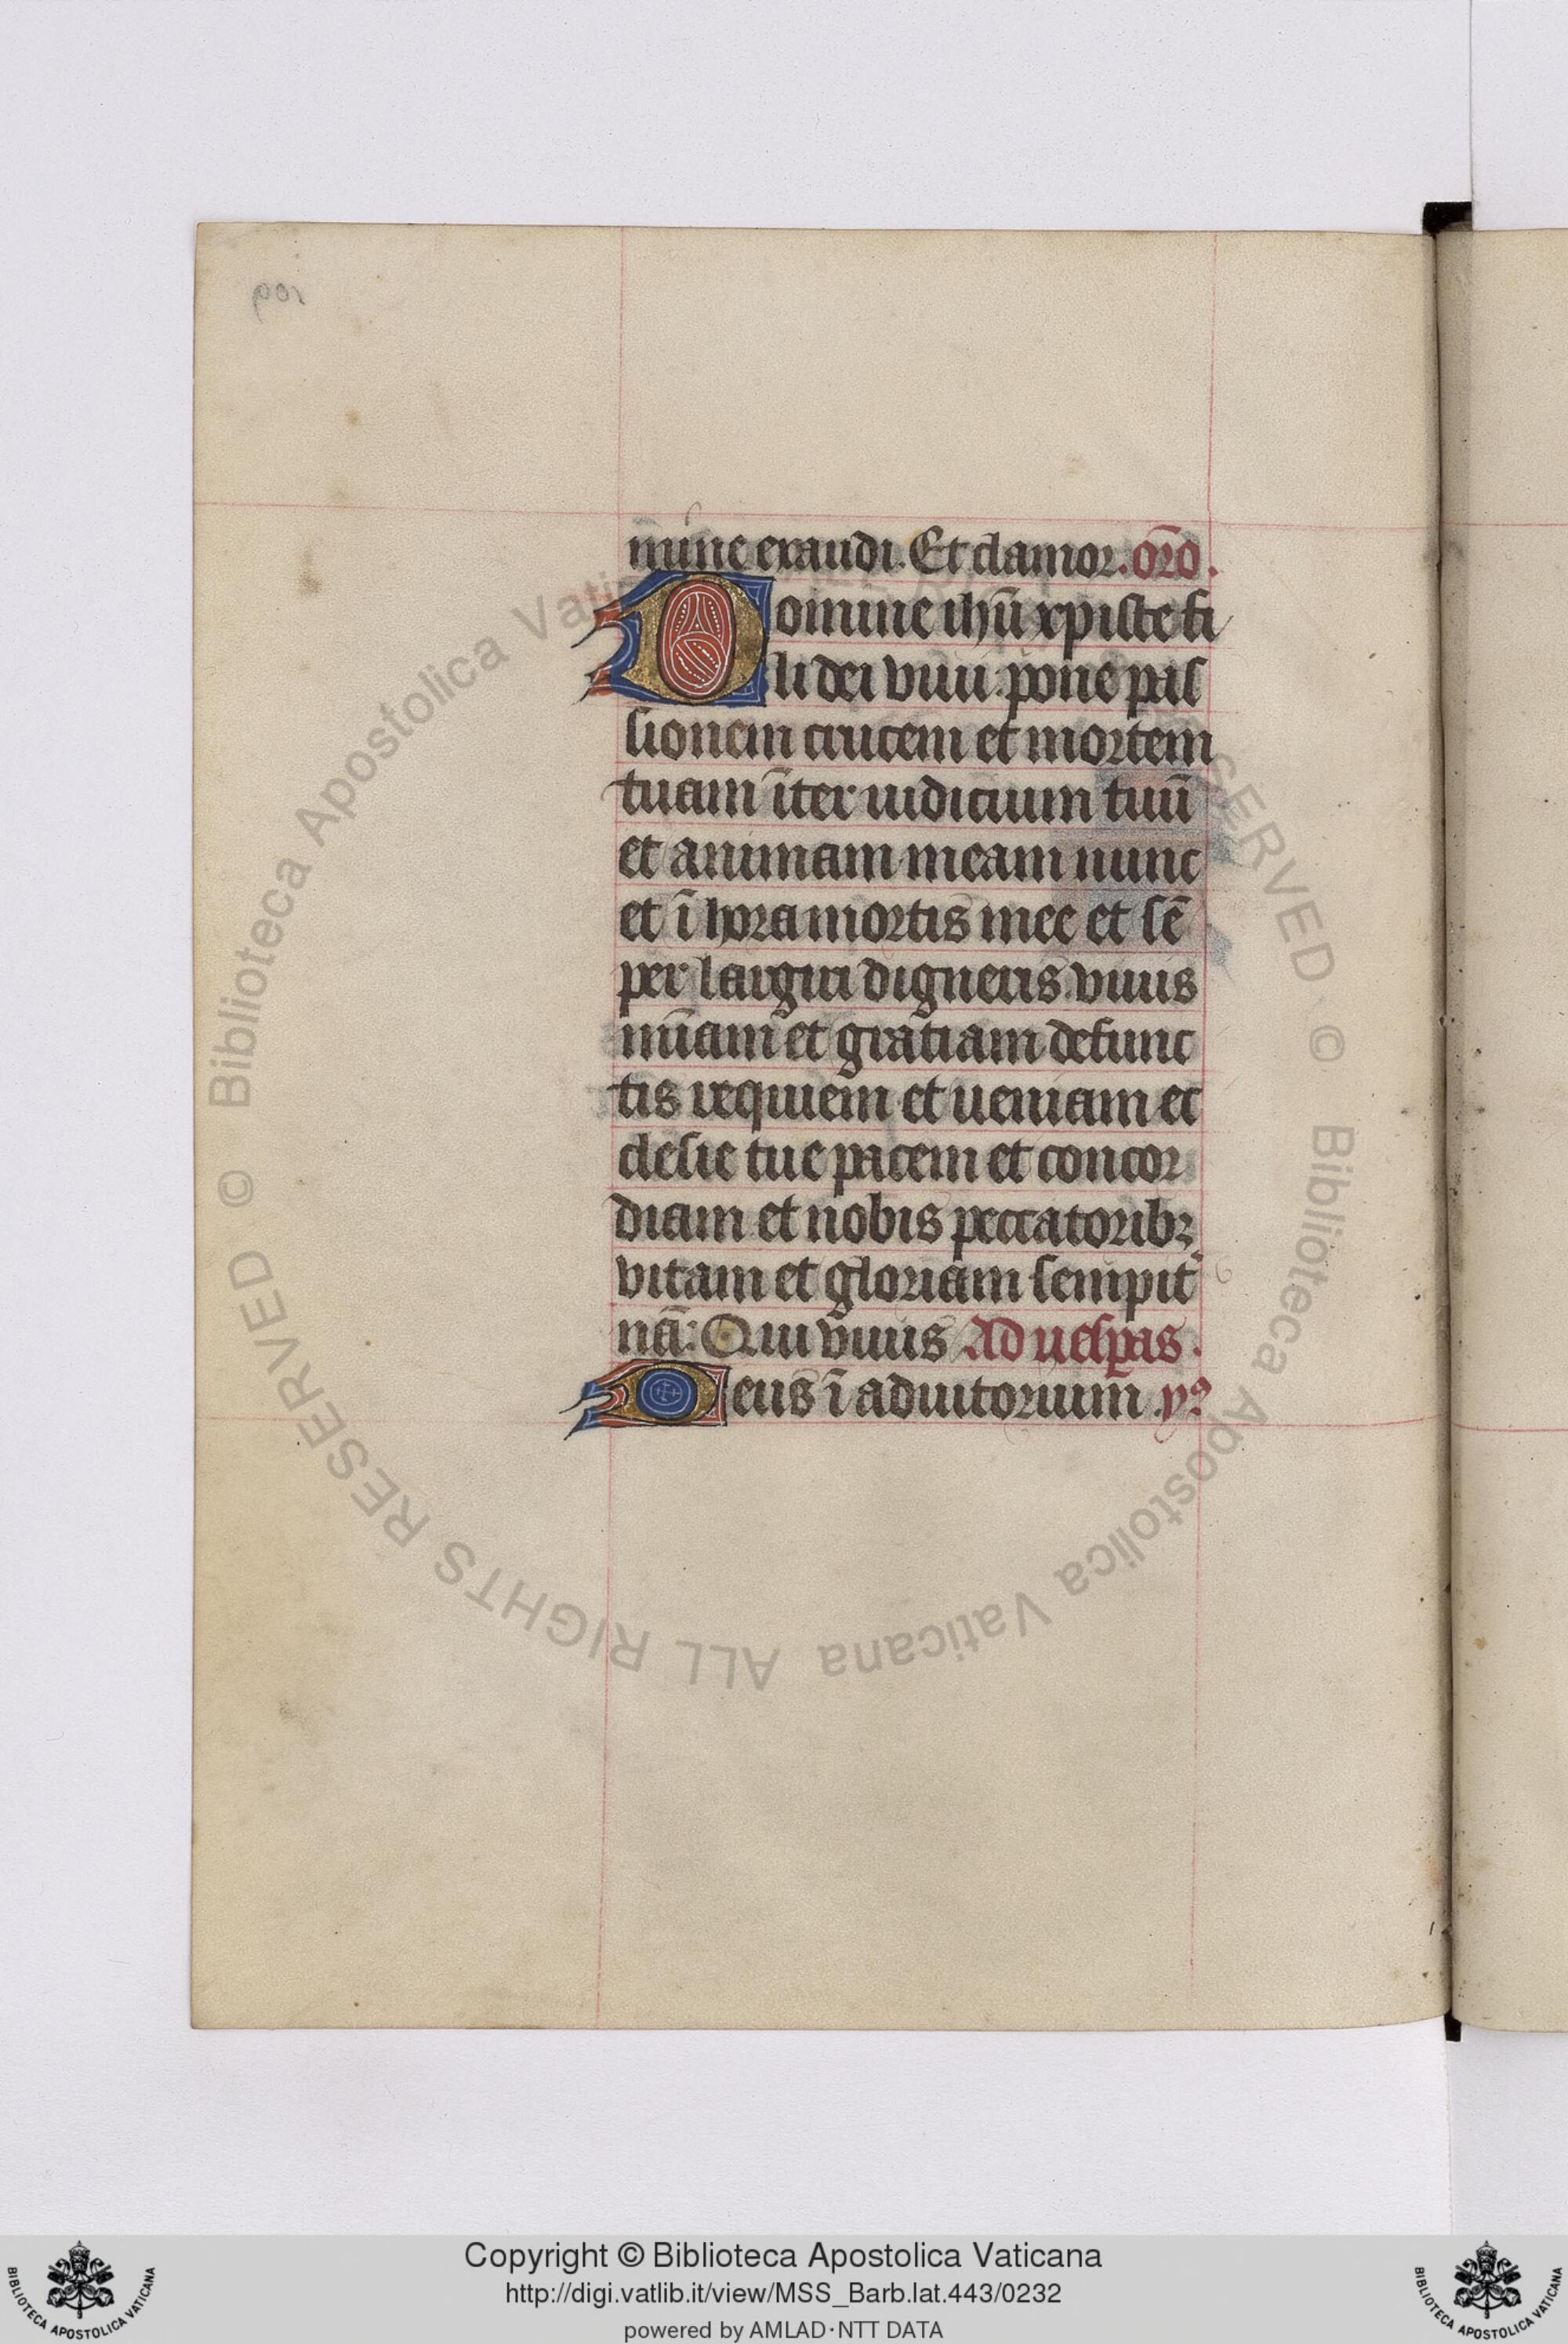 mine exaudi. Et clamor. or̄o.
Domine ihū xpiste fi
li dei viui. pone pas
sionem crucem et mortem
tuam īter iudicium tuū
et animam meam nunc
et ī hora mortis mee et sē
per largiri digneris. viuis
mīam et gratiam defunc
tis requiem et ueniam ec
clesie tue pacem et concor
diam et nobis peccatoribꝫ
vitam et gloriam sempit̾
nā: Qui viuis Ad uesp̄as.
Deus ī adiutorium. ẏꝰ
© Biblioteca Apostolica Vaticana ALL RIGHTS RESERVED © Biblioteca Apostolica Vaticana ALL RIGHTS RESERVED
Copyright © Biblioteca Apostolica Vaticana
http://digi.vatlib.it/view/MSS_Barb.lat.443/0232
powered by AMLAD·NTT DATA
BIBLIOTECA APOSTOLICA VATICANA
BIBLIOTECA APOSTOLICA VATICANA